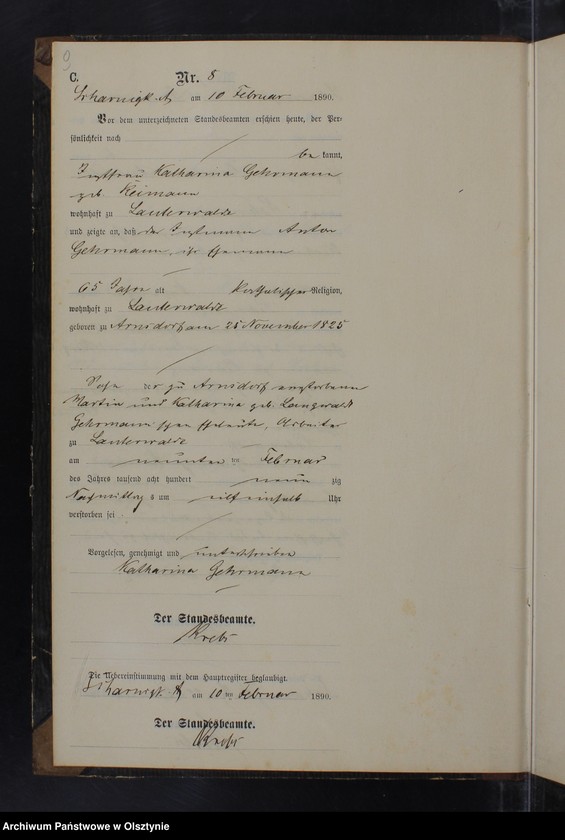 9
C.
Nr. 8
Scharnigk A am 10 Februar 1890.
Vor dem unterzeichneten Standesbeamten erschien heute, der Per-
sönlichkeit nach
be kannt,
Katharina Gehrmann
geb. Reimann
wohnhaft zu Lauterwalde
und zeigte an, daß der Anton
Gehrmann, ihr Ehemann
65 Jahre alt katholischer Religion,
wohnhaft zu Lauterwalde
geboren zu Arnsdorf am 25 November 1825
Sohn der zu Arnsdorf verstorbenen
Martin und Katharina geb. Langwald
Gehrmannschen Eheleute, Arbeiter
zu Lauterwalde
am neunten ten Februar
des Jahres tausend acht hundert neun zig
Nachmittags um eilf einhalb Uhr
verstorben sei
Vorgelesen, genehmigt und unterschrieben
Katharina Gehrmann
Der Standesbeamte.
Krebs
Die Uebereinstimmung mit dem Hauptregister beglaubigt.
Scharnigk A am 10 ten Februar 1890.
Der Standesbeamte.
Krebs
Archiwum Państwowe w Olsztynie